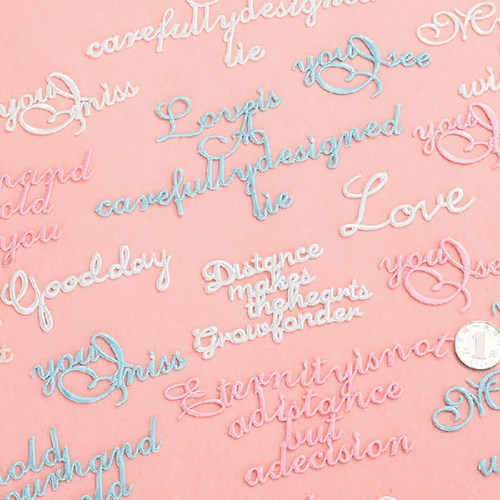 carefullydesigned
lie
you I see
you I miss
Loveis
A
carefullydesigned
lie
wi
you I
rhand
old
you
Love
Goodday
Distance
makes
thehearts
Growfonder
you I see
1
you I miss
Eternityisnot
adistance
but
adecision
hold
yourhand
old